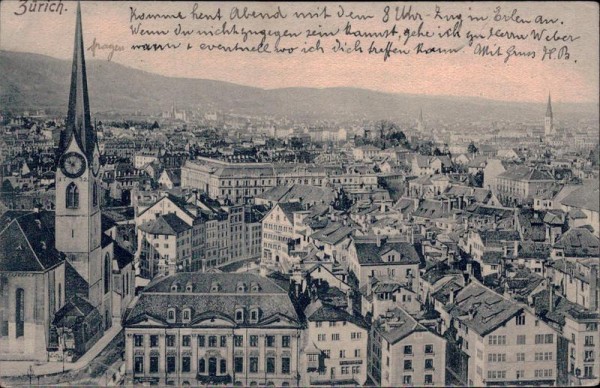 Zürich.
Komme heut Abend mit dem 8 Uhr-Zug in Erlen an.
Wenn Du nicht zugegen sein kannst, gehe ich zu Herrn Weber
fragen
wann & eventuell wo ich dich treffen kann. Mit Gruss H.B.